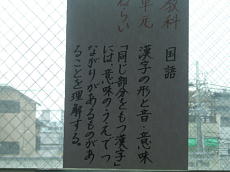 教科 国語
単元 漢字の形と音・意味
ねらい
「同じ部分をもつ漢字」
には、意味のうえでつ
ながりがあるものがあ
ることを理解する。